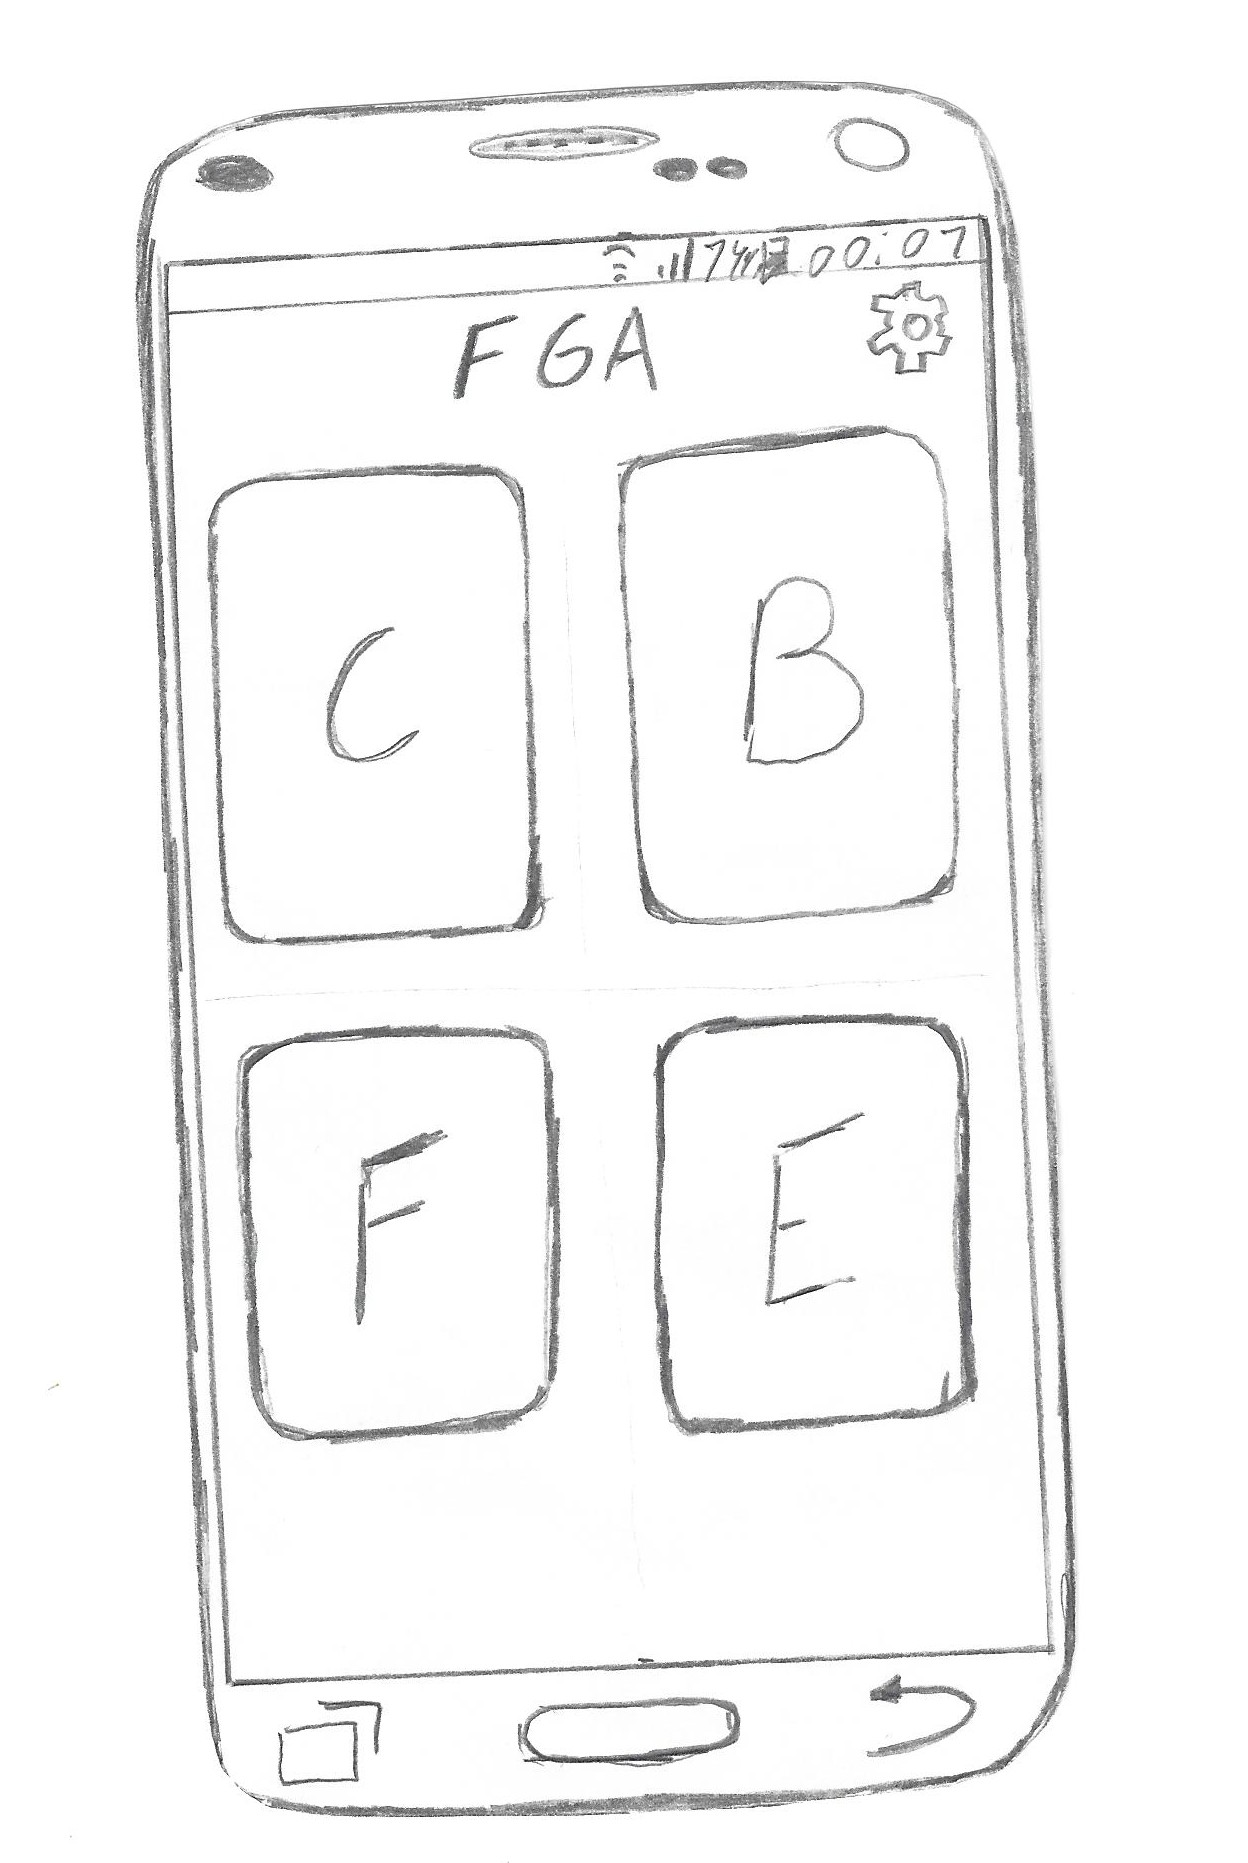 74% 00:07
FGA
C B
F E